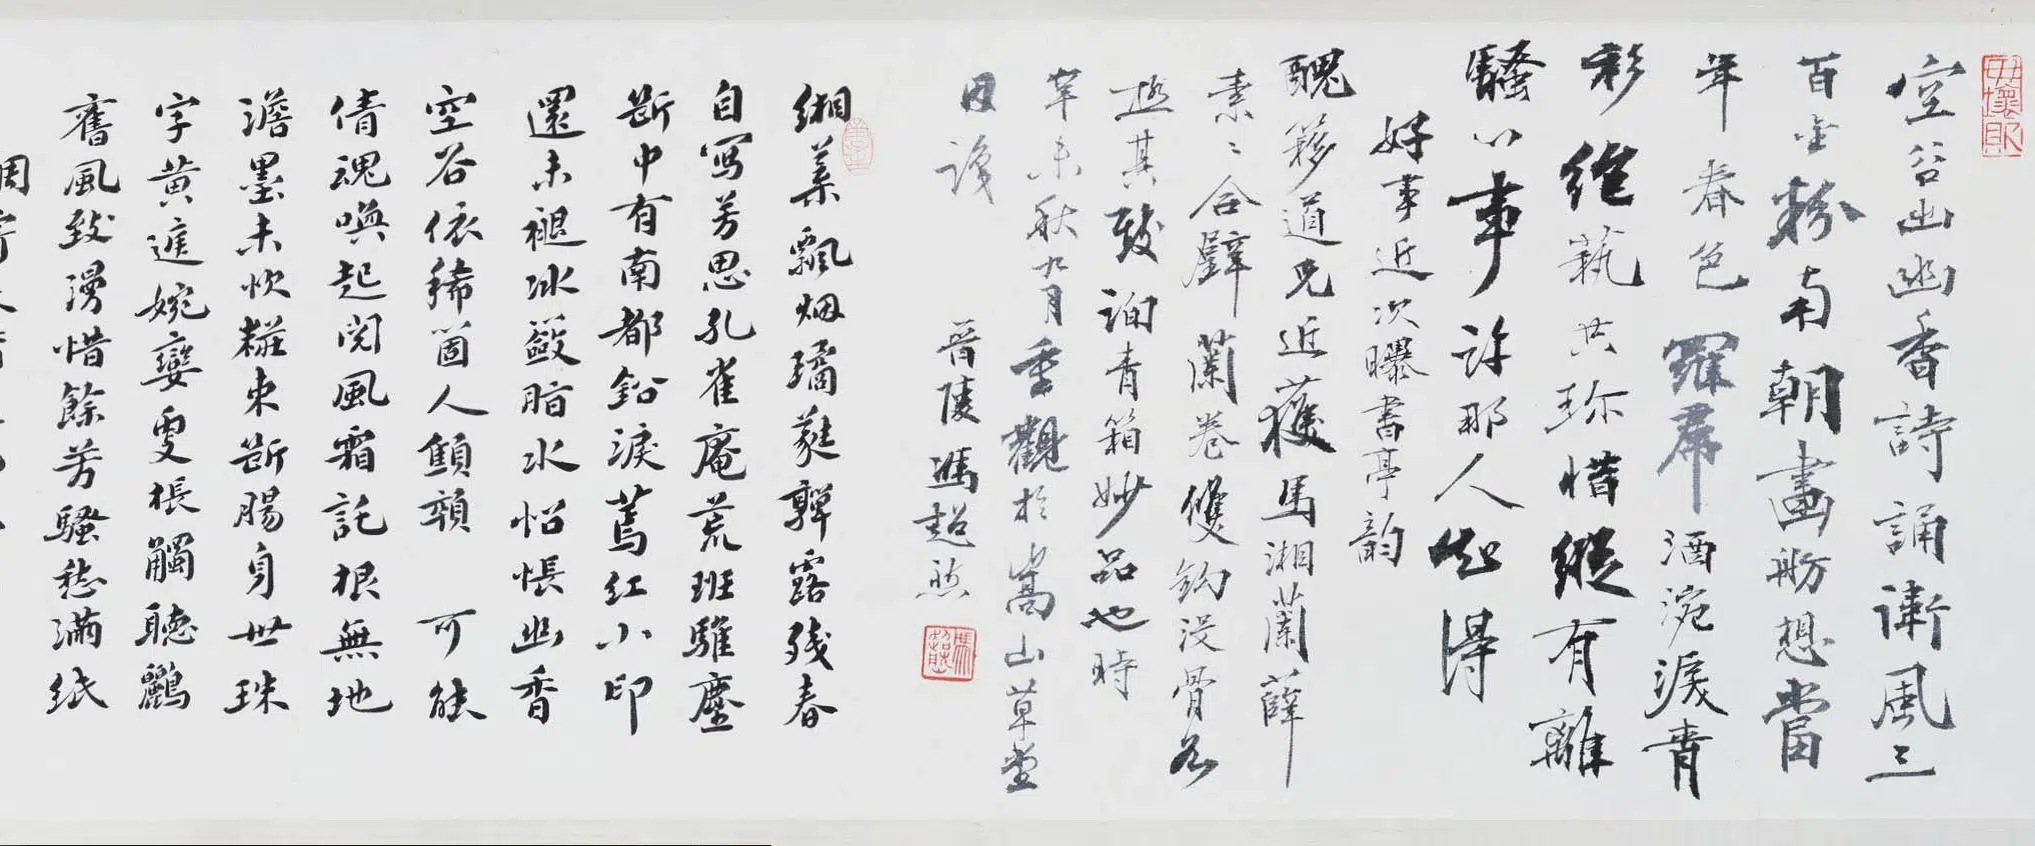 空谷出幽香詩誦衛風三
百金粉南朝畫舫想當
年春色 羅帬酒涴淚青
衫絕執共珍惜縱有離
騷心事許那人知得
好事近次曝書亭韵
醜簃道兄近獲馬湘蘭薛
素素合璧蘭卷雙鈎没骨各
極其致詢青箱妙品也時
辛未秋九月重觀於嵩山草堂
因識 晉陵馮超然
緗葉飄烟璚蕤嚲露殘春
自寫芳思孔雀庵荒班騅塵
斷中有南都鉛淚蔫紅小印
還未褪冰奩脂水怊悵幽香
空谷依稀箇人顦顇 可能
倩魂喚起閱風霜託根無地
澹墨未忺糚束斷腸身世珠
字黄遮婉孌更棖觸聽鸝
舊風致漫惜餘芳騷愁滿紙